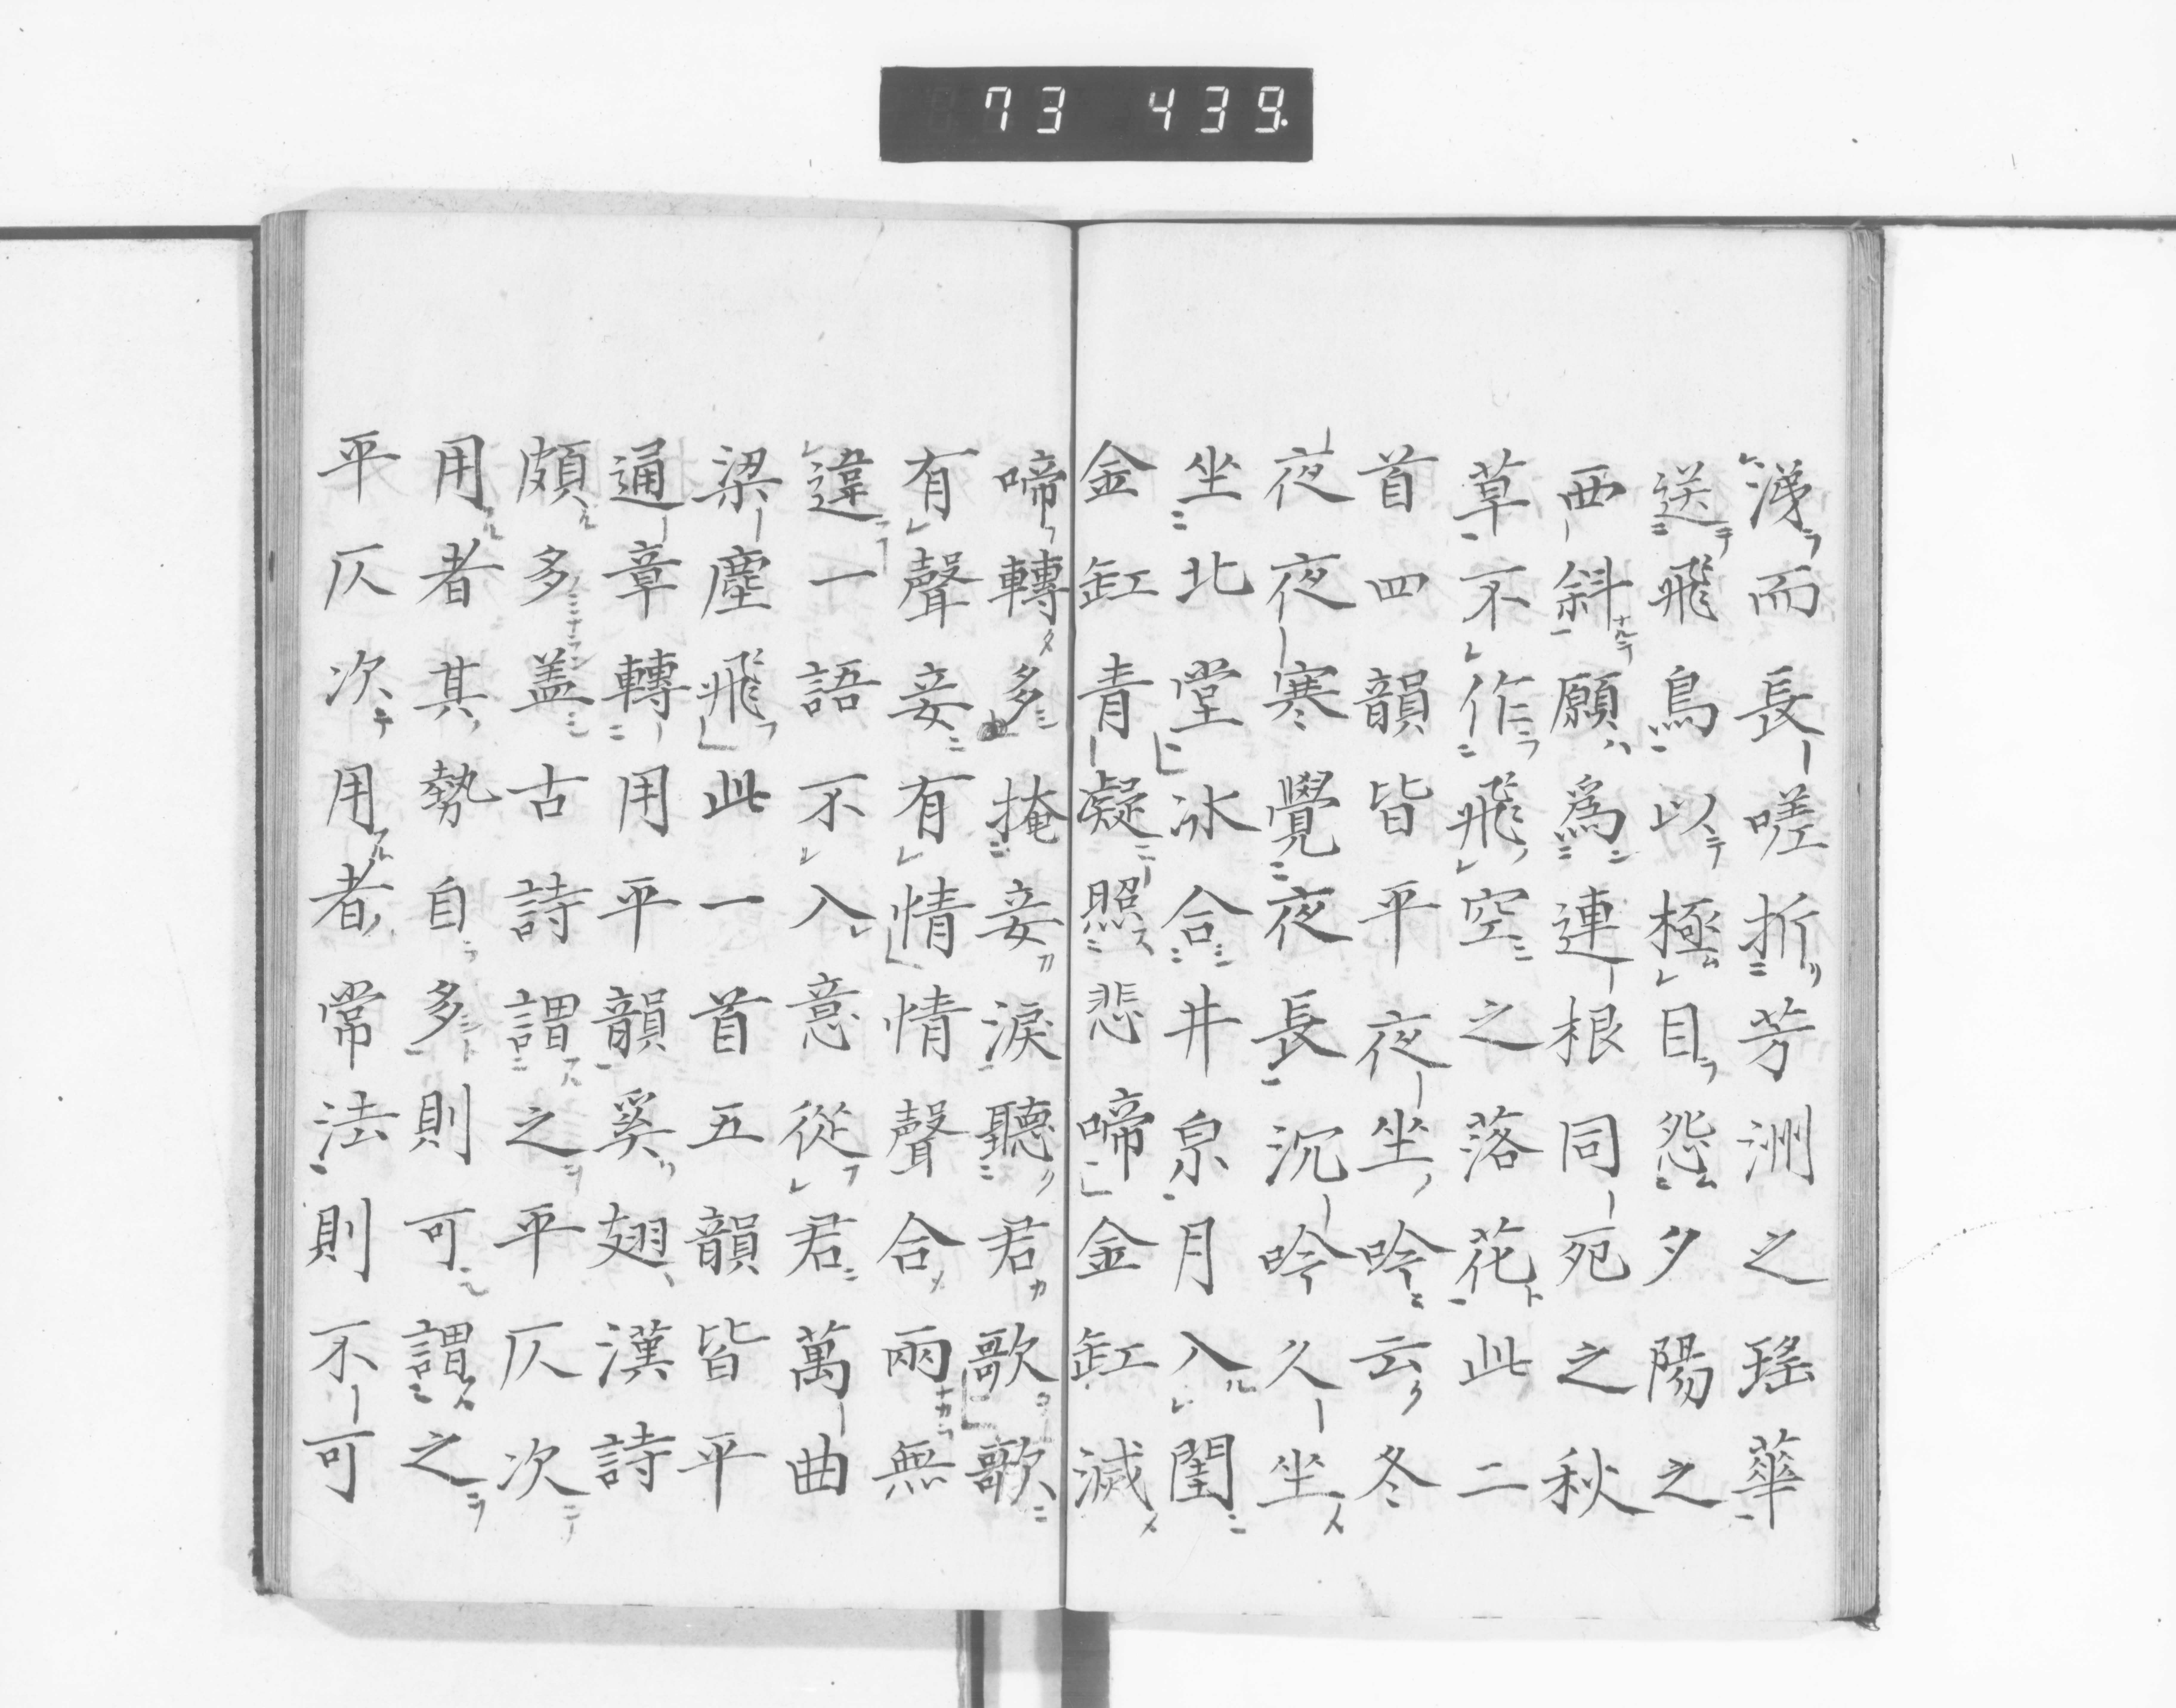 73 439.
涕而長嗟折芳洲之瑤華
送飛鳥以極目怨夕陽之
西斜願爲連根同死之秋
草不作飛空之落花此二
首四韻皆平夜坐吟云冬
夜夜寒覺夜長沉吟久坐
坐北堂氷合井泉月入閨
金缸青凝照悲啼金缸滅
啼轉多掩妾淚聽君歌歌
有聲妾有情情聲合兩無
違一語不入意從君萬曲
梁塵飛此一首五韻皆平
通章轉用平韻奚翅漢詩
頗多盖古詩謂之平仄次
用者其勢自多則可謂之
平仄次用者常法則不可